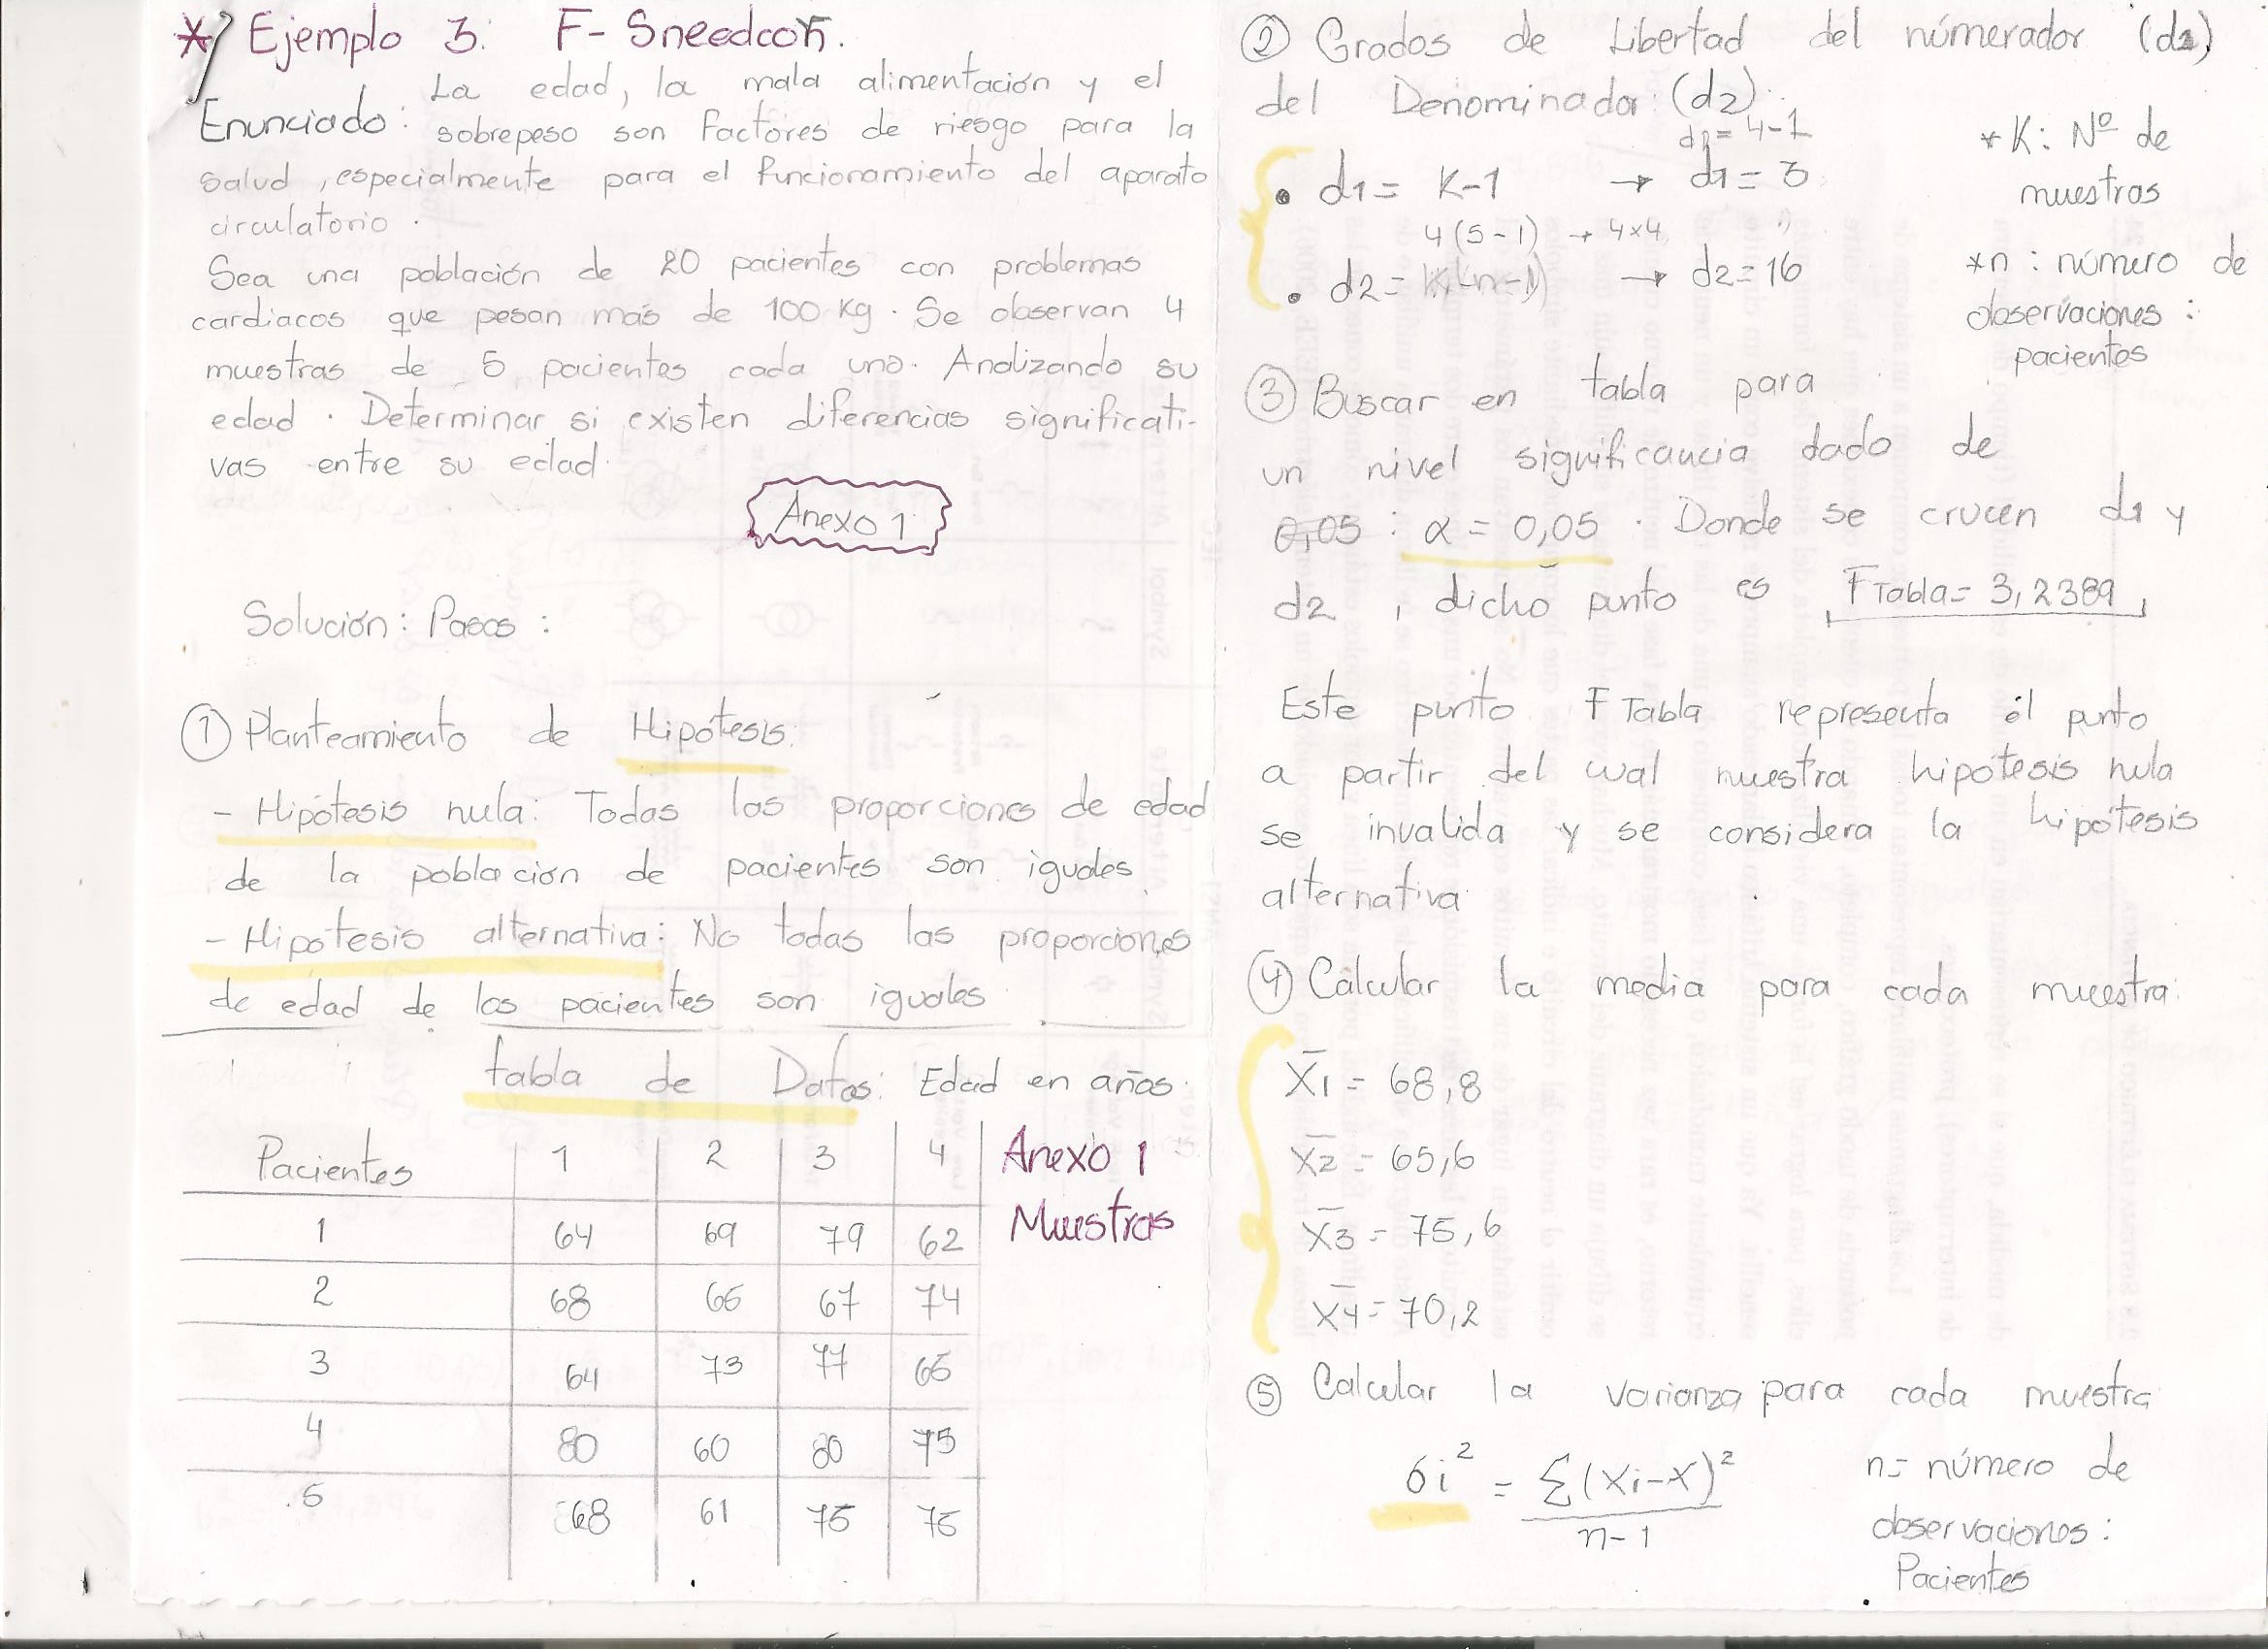 * Ejemplo 3: F-Sneedcor.
Enunciado: La edad, la mala alimentación y el
sobrepeso son Factores de riesgo para la
salud, especialmente para el funcionamiento del aparato
circulatorio.
Sea una población de 20 pacientes con problemas
cardiacos que pesan más de 100 kg. Se observan 4
muestras de 5 pacientes cada uno. Analizando su
edad. Determinar si existen diferencias significati-
vas entre su edad.
Anexo 1
Solución: Pasos:
① Planteamiento de Hipótesis:
- Hipótesis nula: Todas las proporciones de edad
de la población de pacientes son iguales.
- Hipótesis alternativa: No todas las proporciones
de edad de los pacientes son iguales.
tabla de Datos: Edad en años.
Pacientes 1 2 3 4 Anexo 1
Muestras
1 64 69 79 62
2 68 65 67 74
3 64 73 77 65
4 80 60 80 75
5 68 61 75 75
② Grados de Libertad del númerador (d1)
del Denominador (d2):
d1 = 4-1
• d1 = K-1 → d1 = 3
4(5-1) → 4x4
• d2 = K(n-1) → d2 = 16
* K: Nº de
muestras
*n: número de
observaciones:
pacientes
③ Buscar en tabla para
un nivel significancia dado de
0,05: α = 0,05. Donde se crucen d1 y
d2, dicho punto es FTabla = 3,2389
Este punto F Tabla representa él punto
a partir del cual nuestra hipótesis nula
se invalida y se considera la hipótesis
alternativa
④ Cálcular la media para cada muestra:
X̄1 = 68,8
X̄2 = 65,6
X̄3 = 75,6
X̄4 = 70,2
⑤ Calcular la varianza para cada muestra
σi² = Σ(Xi-X)²
n-1
n= número de
observaciones:
Pacientes